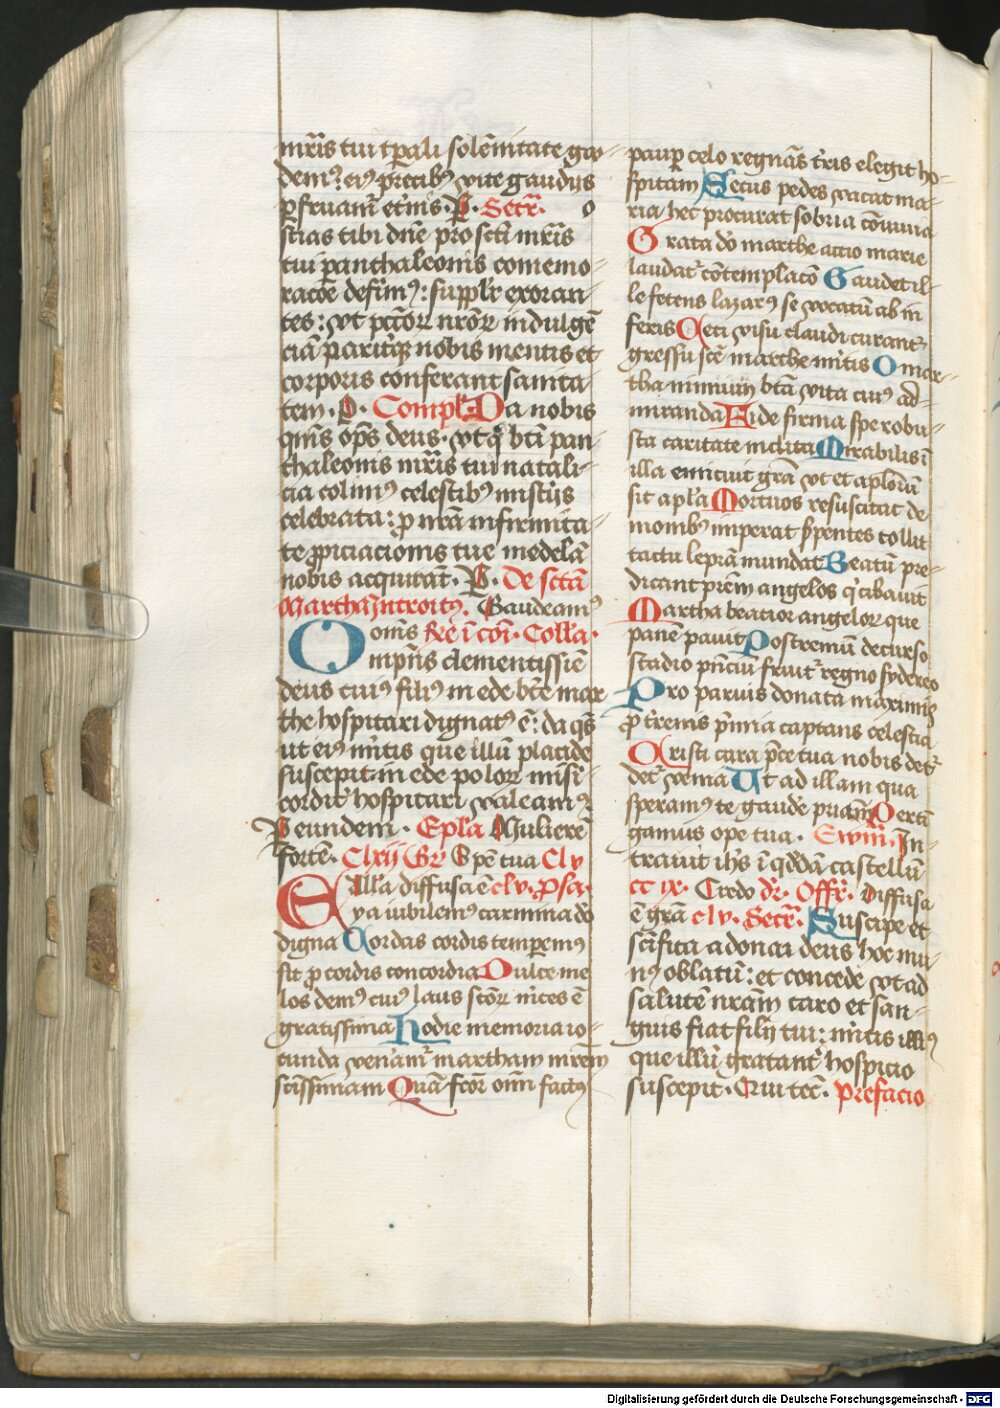 mr̃is tui tꝑali solẽnitate gau⸗
dem⁹: ei⁹ p̃cib⁹ vite gaudijs
ꝑfruam̃ et̃nis. P. Secr̃. o
stias tibi dñe pro sct̃i mr̃is
tui panthaleonis comemo⸗
racõe deferim⁹: supplr̃ exoran⸗
tes: vt pctõꝝ nr̃oꝝ indulgẽ
ciã pariterqꝫ nobis mentis et
corporis conferant sanita⸗
tem. P. Compl̃. Da nobis
qm̃s op̃s deus. vt qͥ bt̃i pan⸗
thaleonis mr̃is tui natali⸗
cia colim⁹ celestib⁹ mist̃ijs
celebrata: ꝓ nr̃a infirmita⸗
te ꝓpiciacionis tue medelã
nobis acquirãt. P. De sctã
Martha Introit⁹. Gaudeam⁹
om̃s Rẽ ĩ cõi. Coll̃a.
Omp̃ns clementissiẽ
deus cui⁹ fili⁹ in ede bt̃e mar
the hospitari dignat⁹ ẽ: da q̃s
ut ei⁹ mr̃itis que illũ placide
suscepit in ede poloꝝ misi⸗
cordit̃ hospitari valeam⁹.
P eundem. Epl̃a Mulierẽ
fortẽ. Clxij Gr̃ Spẽ tua Cl v
All̃a diffusa ẽ clv. Psa.
Eya iubilem⁹ carmina dõ
digna Cordas cordis temperem⁹
sit ꝓ cordis concordia Dulce me
los dem⁹ cui⁹ laus sctõꝝ mr̃ces ẽ
gratissima Hodie memoria io⸗
cunda venãmr̃ martham mr̃em
sctissimam Quã sctõꝝ om̃i fact⁹
paup̃ celo regnãs tr̃is elegit ho⸗
spitam Secus pedes vacat ma⸗
ria hec procurat sobria cõuiuia
Grata dõ marthe actio marie
laudat̃ cõtemplacõ Gaudet il⸗
le fetens lazar⁹ se vocatũ ab in
feris Ceci visu claudi curant̃
gressu scẽ marthe mr̃itis O mar⸗
tha nimium bt̃a vita cui⁹ ad⸗
miranda Fide firma spe robu⸗
sta caritate inclita Mirabilis ĩ
illa emicuit grã vt et apl̃orũ
sit apl̃a Mortuos resuscitat de
monib⁹ imperat ẜpentes tollit
tactu leprã mundat Beatũ pre⸗
dicant pr̃em angelos qͥ cibauit
Martha beatior angeloꝝ que
panẽ pauit Postremũ decurso
stadio pm̃ciũ fruit̃ regno sydereo
Pro paruis donata maximis
ꝓ tr̃enis p̃mia captans celestia
Cristi cara p̃ce tua nobis det̃
det̃ venia Ut ad illam qua
speram⁹ te gaude priam Perti
gamus ope tua. Ewm̃. In⸗
trauit ih̃s ĩ qd̃dã castellũ
cc ix. Credo dr̃. Offr̃. Diffusa
ẽ grã clv. Secr̃. Suscipe et
sctĩfica adonai deus hoc mu⸗
n⁹ oblatũ: et concede vt ad
salutẽ nr̃am caro et san⸗
guis fiat filij tui: mr̃itis illi⁹
que illũ gratant̃ hospicio
suscepit. Qui tec̃. Prefacio
Digitalisierung gefördert durch die Deutsche Forschungsgemeinschaft - DFG